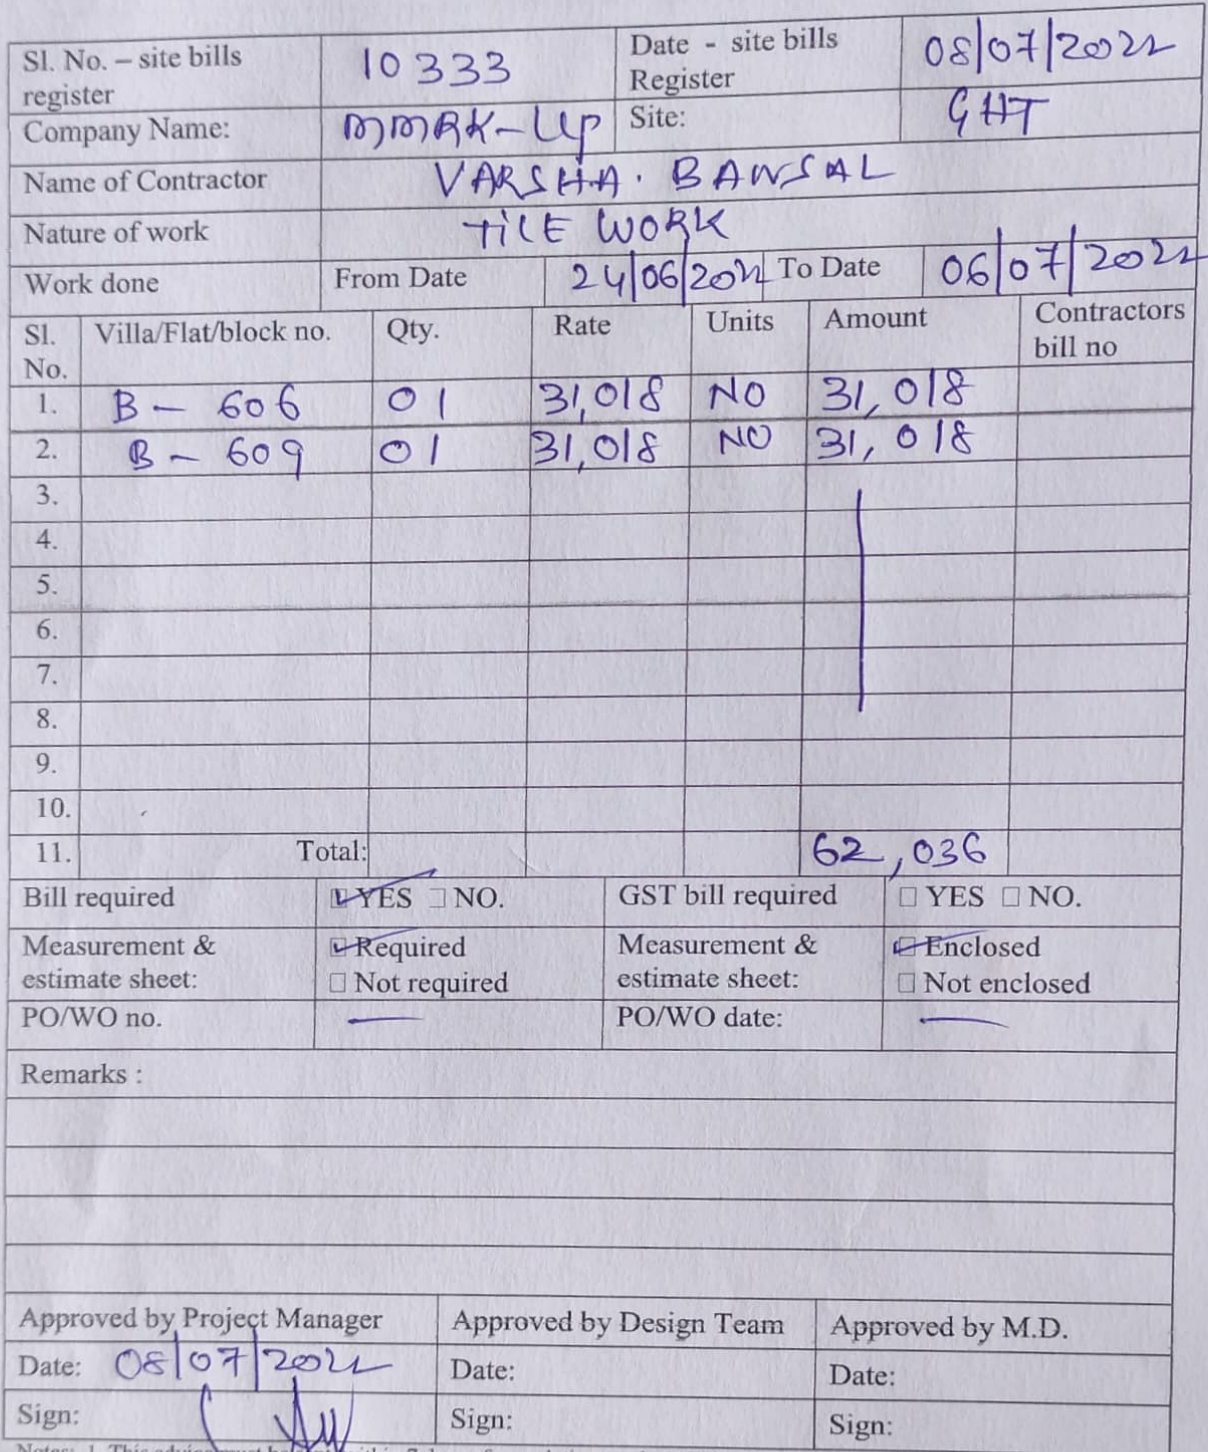 Sl. No. – site bills register 10333 Date - site bills Register 08/07/2022
Company Name: MMRK-Up Site: GHT
Name of Contractor VARSHA. BANSAL
Nature of work TILE WORK
Work done From Date 24/06/2022 To Date 06/07/2022
Sl. No. Villa/Flat/block no. Qty. Rate Units Amount Contractors bill no
1. B - 606 01 31,018 NO 31,018
2. B - 609 01 31,018 NO 31,018
3.
4.
5.
6.
7.
8.
9.
10.
11. Total: 62,036
Bill required ☑ YES ☐ NO. GST bill required ☐ YES ☐ NO.
Measurement & estimate sheet: ☑ Required ☐ Not required Measurement & estimate sheet: ☑ Enclosed ☐ Not enclosed
PO/WO no. — PO/WO date: —
Remarks :
Approved by Project Manager Approved by Design Team Approved by M.D.
Date: 08/07/2022 Date: Date:
Sign: Sign: Sign: